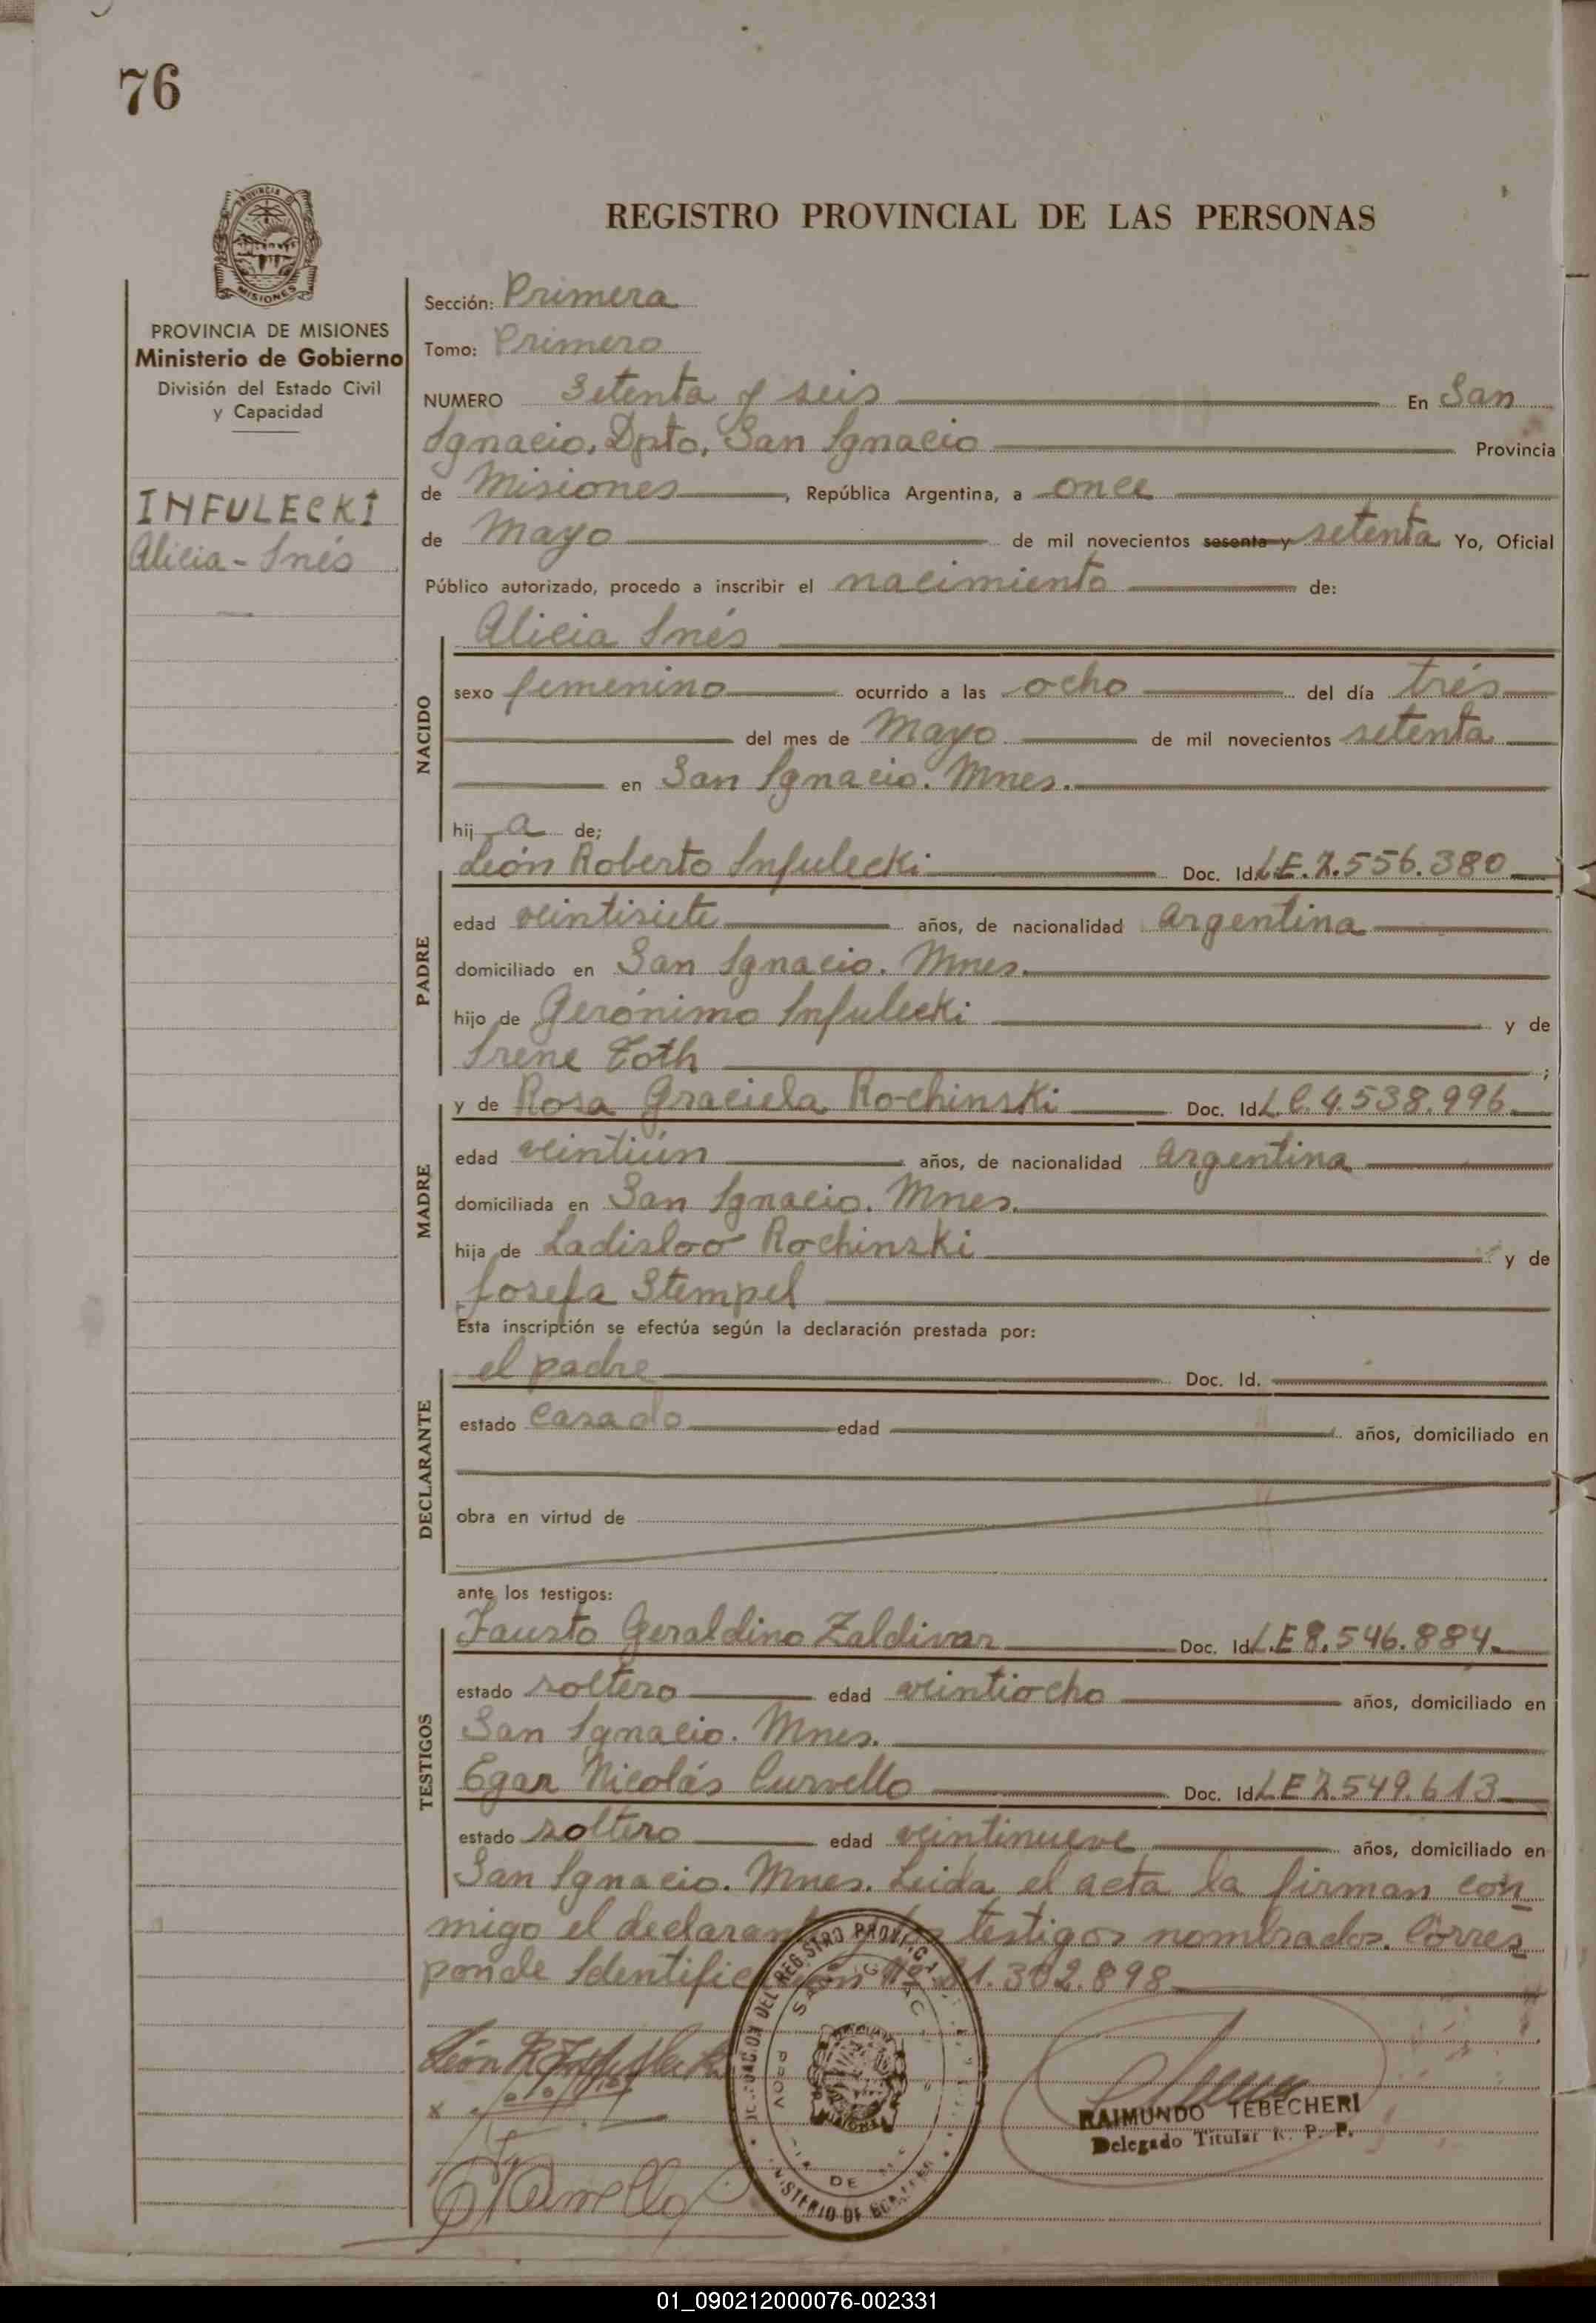 76
PROVINCIA
MISIONES
PROVINCIA DE MISIONES
Ministerio de Gobierno
División del Estado Civil
y Capacidad
INFULECKI
Alicia - Inés
REGISTRO PROVINCIAL DE LAS PERSONAS
Sección: Primera
Tomo: Primero
NUMERO Setenta y seis En San
Ignacio. Dpto. San Ignacio Provincia
de Misiones, República Argentina, a once
de Mayo de mil novecientos sesenta y setenta Yo, Oficial
Público autorizado, procedo a inscribir el nacimiento de:
NACIDO
Alicia Inés
sexo femenino ocurrido a las ocho del día trés
del mes de Mayo de mil novecientos setenta
en San Ignacio. Mnes.
hij a de;
PADRE
León Roberto Infulecki Doc. Id. L.E. 7.556.380
edad veintisiete años, de nacionalidad argentina
domiciliado en San Ignacio. Mnes.
hijo de Gerónimo Infulecki y de
Irene Toth ;
MADRE
y de Rosa Graciela Rochinski Doc. Id. L.C. 4.538.996
edad veintiún años, de nacionalidad argentina
domiciliada en San Ignacio. Mnes.
hija de Ladisloo Rochinski y de
Josefa Stempel
Esta inscripción se efectúa según la declaración prestada por:
DECLARANTE
el padre Doc. Id.
estado casado edad años, domiciliado en
obra en virtud de
ante los testigos:
TESTIGOS
Fausto Geraldino Zaldivar Doc. Id. L.E 8.546.884.
estado soltero edad veintiocho años, domiciliado en
San Ignacio. Mnes.
Egar Nicolás Curvello Doc. Id. L.E 7.549.613
estado soltero edad veintinueve años, domiciliado en
San Ignacio. Mnes. Leida el acta la firman con
migo el declarante testigos nombrados. Corres
ponde Identificación Nº 21.302.898
León R. Infulecki
RAIMUNDO TEBECHERI
Delegado Titular R. P. P.
DEL REGISTRO PROVINC
SAN IGNAC
PROV
DE
MINISTERIO DE GOB
01_090212000076-002331